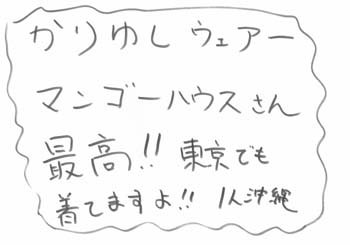 かりゆしウェアー
マンゴーハウスさん
最高!! 東京でも
着てますよ!! 1人沖縄